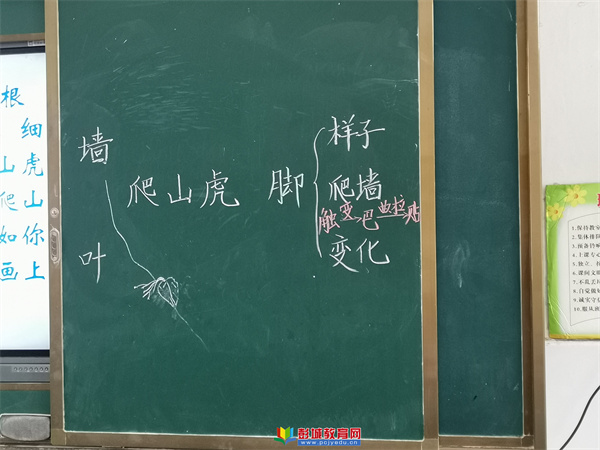 根
细
山虎
爬山
如你
画上
墙
叶
爬山虎
脚
样子
爬墙
触变巴曲拉贴
变化
1.保持教室
2.集体排队
3.预备铃响
4.上课专心
5.独立、
6.课间文明
7.不乱丢
8.自觉做好
9.诚实守信
10.服从
彭城教育网
www.pcjyedu.cn